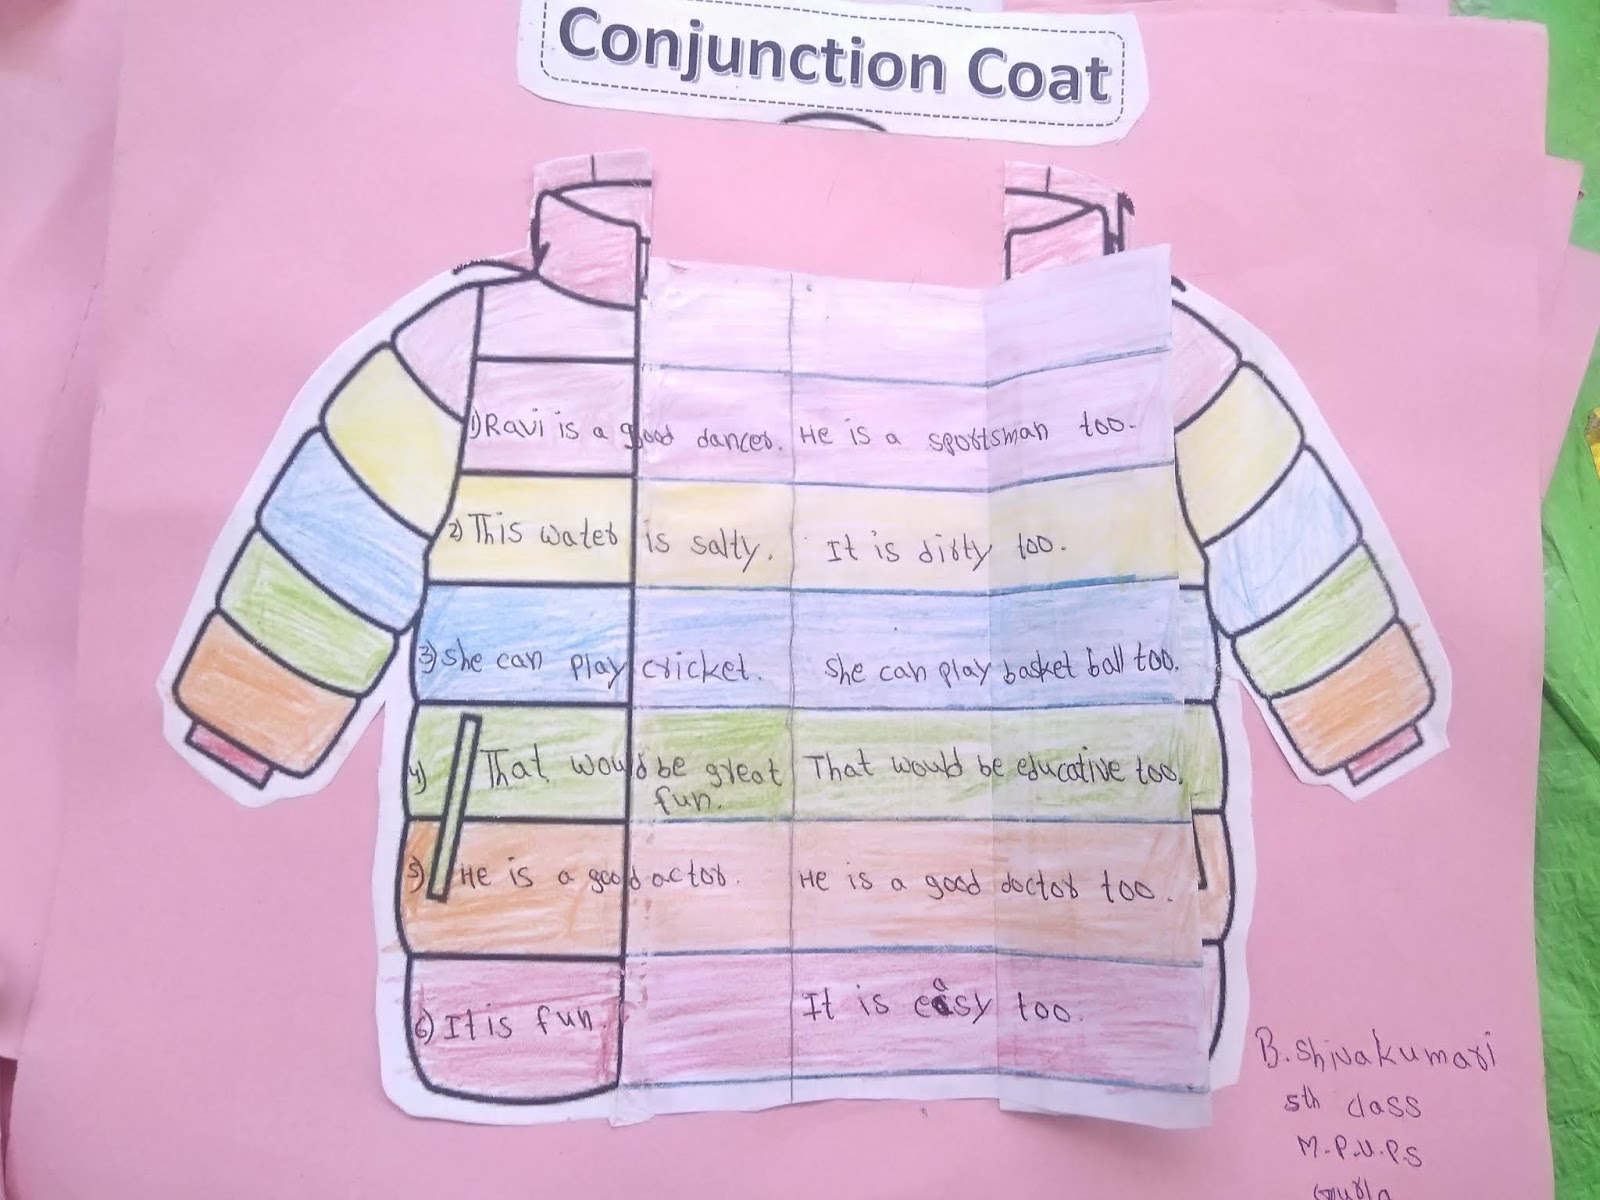 Conjunction Coat
1) Ravi is a good dancer. He is a sportsman too.
2) This water is salty. It is dirty too.
3) She can play cricket. She can play basket ball too.
4) That would be great That would be educative too.
fun.
5) He is a good actor. He is a good doctor too.
6) It is fun. It is easy too.
B. Shivakumari
5th class
M.P.U.P.S